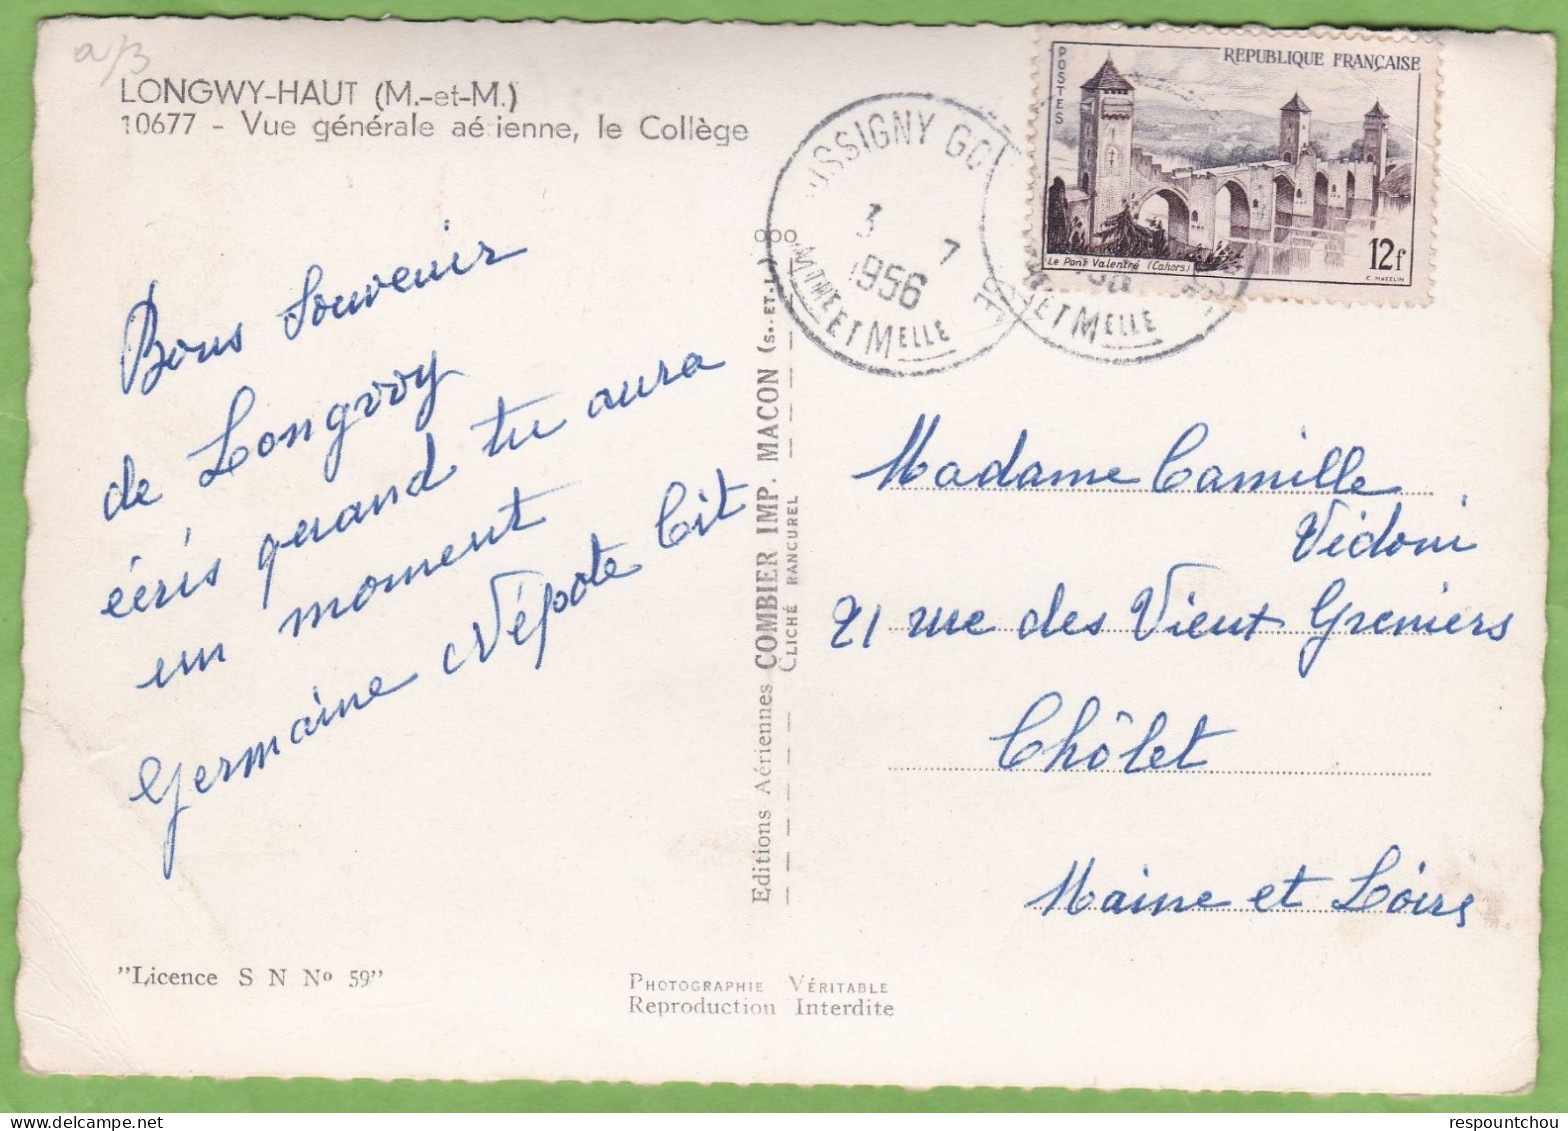 a/3
LONGWY-HAUT (M.-et-M.)
10677 - Vue générale aérienne, le Collège
Bons Souvenir
de Longwy
écris quand tu aura
un moment
Germaine Népote Cit
"Licence S N Nº 59"
Editions Aériennes COMBIER IMP. MACON (S.-ET-L.)
CLICHÉ RANCUREL
PHOTOGRAPHIE VÉRITABLE
Reproduction Interdite
USSIGNY GO
3 7
1956
MTHE ET MELLE
ET MELLE
POSTES
REPUBLIQUE FRANÇAISE
Le Pont Valentré (Cahors)
12f
C. MAZELIN
Madame Camille
Vidoni
21 rue des Vieux Greniers
Chôlet
Maine et Loire
respountchou